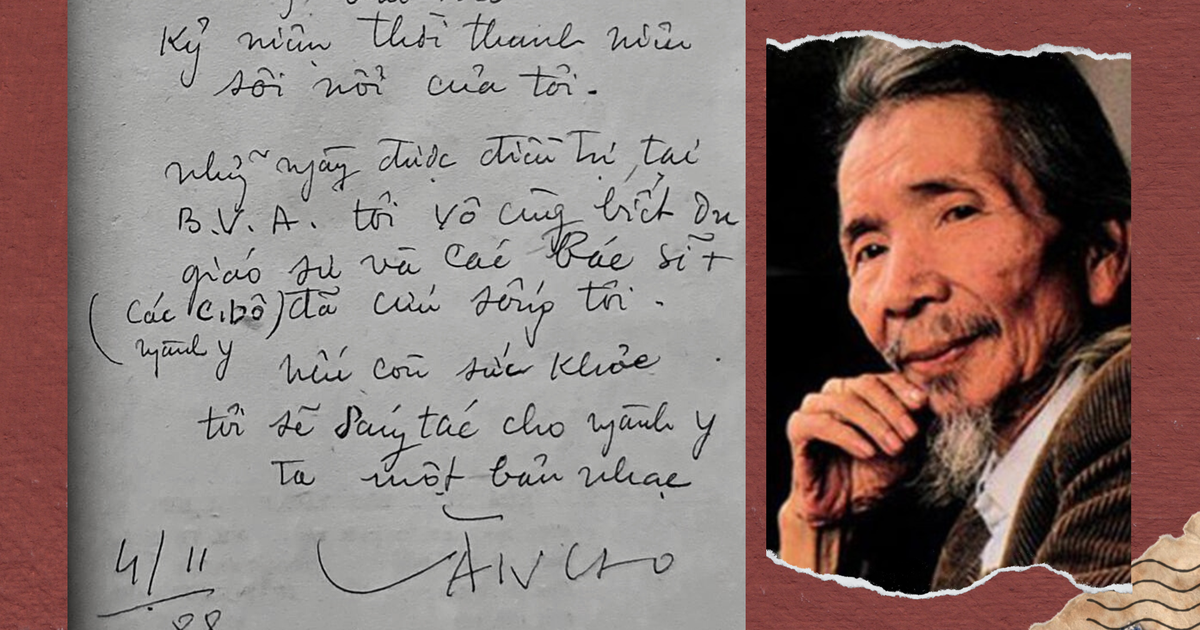 Kỷ niệm thời thanh niên
sôi nổi của tôi.
những ngày được điều trị tại
B.V.A. tôi vô cùng biết ơn
giáo sư và các Bác sĩ +
(các c.bộ) đã cứu sống tôi.
ngành y
nếu còn sức khỏe
tôi sẽ sáng tác cho ngành y
ta một bản nhạc
4/11
88
VĂN CAO